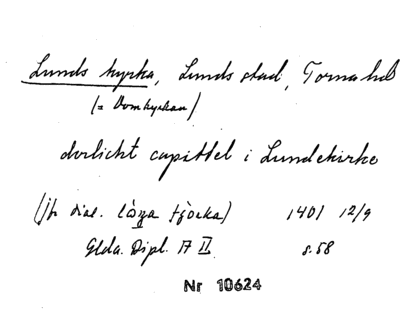 Lunds kyrka, Lunds stad, Torna hd
(= Domkyrkan)
dvrlicht capittel i Lundekirke
(jfr dial. kyrka) 1401 12/9
Glda. Dipl. A II s. 58
Nr 10624